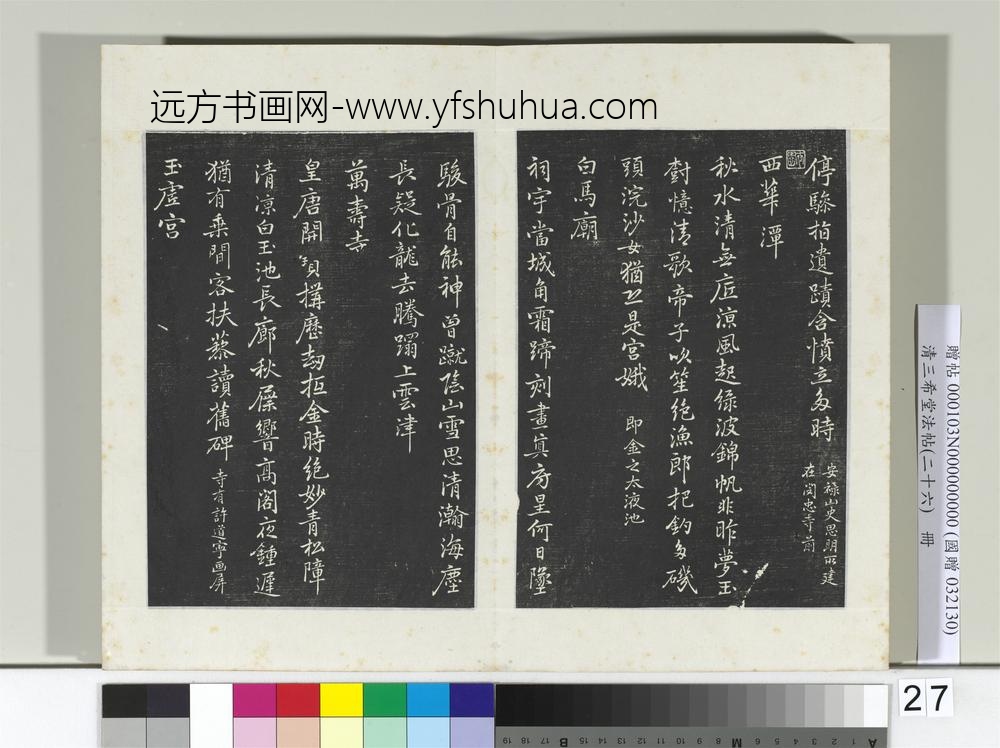 远方书画网-www.yfshuhua.com
停驂指遺蹟含憤立多時
安祿山史思明所建
在閔忠寺前
西華潭
秋水清無底涼風起綠波錦帆非昨夢玉
對憶清歌帝子吹笙絶漁郎把釣多磯
頭浣沙女猶恐是宮娥
即金之太液池
白馬廟
祠宇當城角霜蹄刻畫真房星何日墜
駿骨自能神曾蹴陰山雪思清瀚海塵
長疑化龍去騰躍上雲津
萬壽寺
皇唐開寶搆歷劫抵金時絶妙青松障
清涼白玉池長廊秋屧響高閣夜鍾遲
猶有乘閒客扶藜讀舊碑
寺有許道寧画屏
玉虛宮
贈帖 000103N000000000 (國贈 032130)
清三希堂法帖(二十六) 冊
27
19 18 17 16 15 B 14 13 12 11 10 9 8 7 M 6 5 4 3 2 1 A